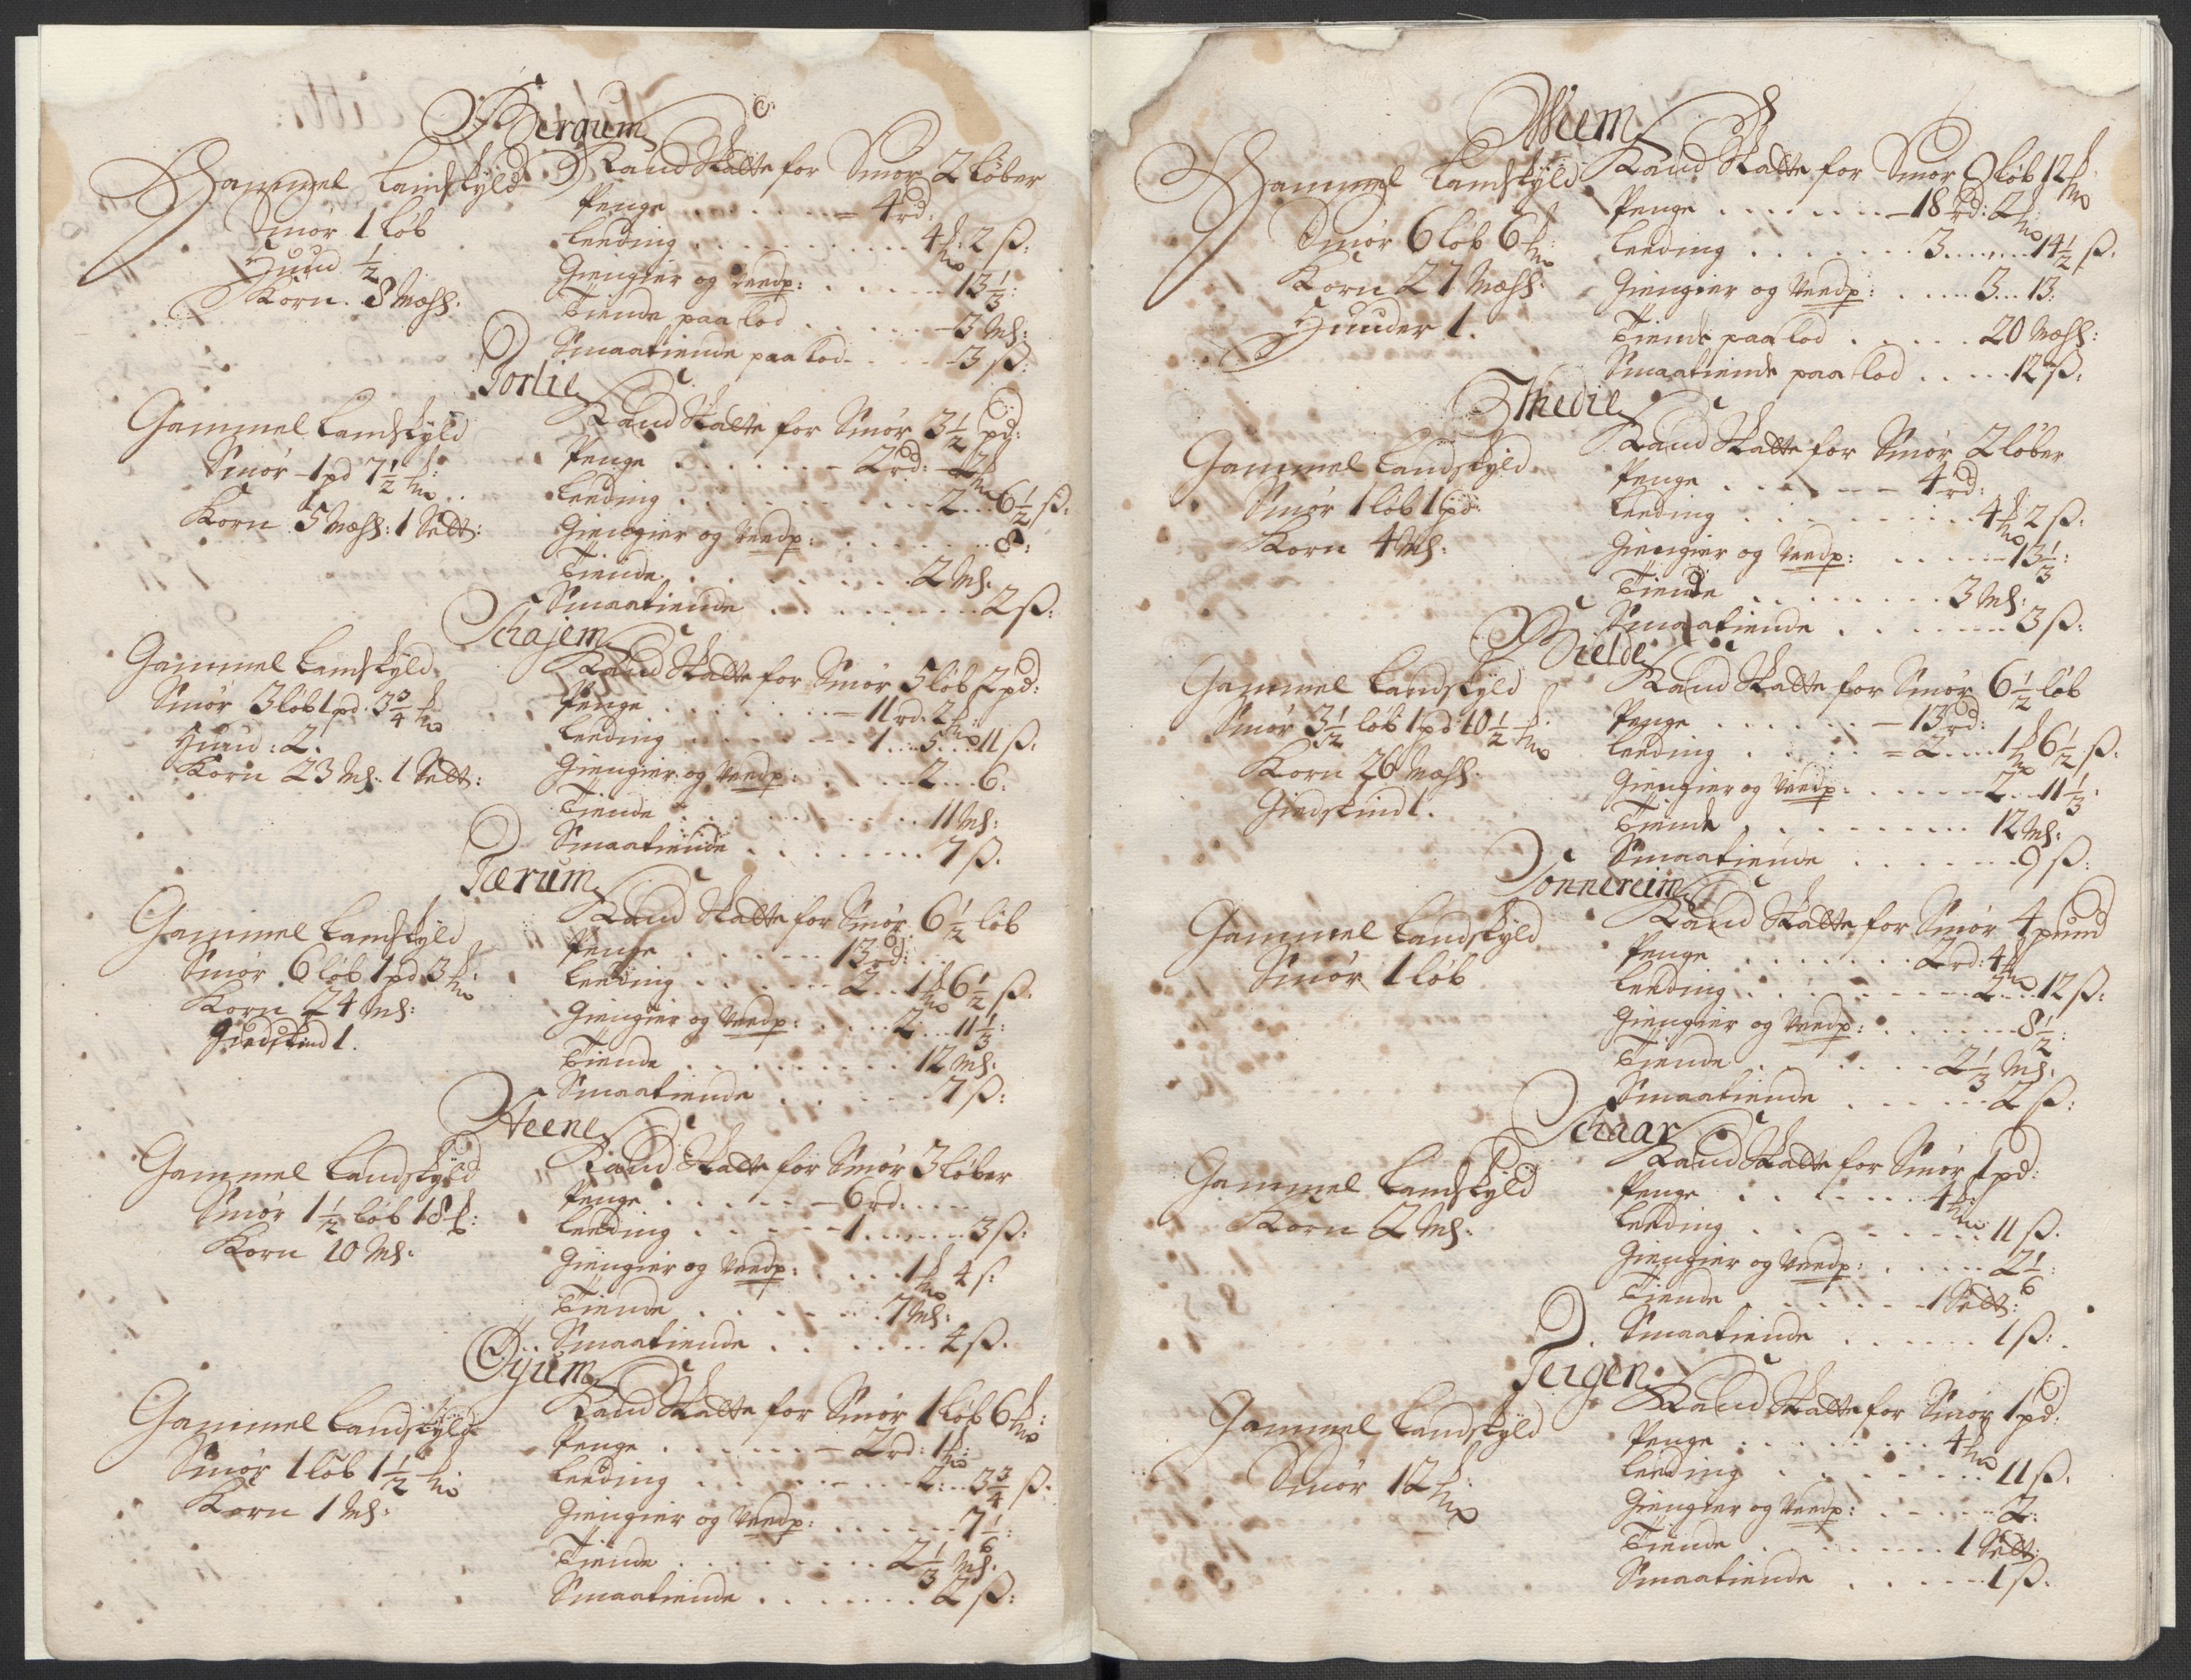 Bergum
Gammel Landskyld
Smør 1 løb
Huud 1/2
Korn 8 Mæhl:
Kaud Skatte for Smør 2 løber
Penge 4 rd:
Leeding 4 mk: 2 ß:
Giengier og Veedp: 13 1/3:
Tiende paa lod 3 Ml:
Smaatiende paa lod 3 ß:
Torlie
Gammel Landskyld
Smør 1 pd 7 1/2 mk:
Korn 5 Mæhl: 1 Sedt:
Kaud Skatte for Smør 3 1/2 pd:
Penge 2 rd: 2 mk
Leeding 2 6 1/2 ß:
Giengier og Veedp: 8:
Tiende 2 Ml:
Smaatiende 2 ß:
Schajem
Gammel Landskyld
Smør 3 løb 1 pd: 3 3/4 mk
Huud: 2.
Korn 23 Ml: 1 Sedt:
Kaud Skatte for Smør 5 løb 2 pd:
Penge 11 rd: 2 mk:
Leeding 1 5 11 ß:
Giengier og Veedp: 2 6:
Tiende 11 Ml:
Smaatiende 7 ß.
Tærum
Gammel Landskyld
Smør 6 løb 1 pd 3 mk:
Korn 24 Ml:
Giedskind 1.
Kaud Skatte for Smør 6 1/2 løb
Penge 13 rd:
Leeding 2 1 mk 6 1/2 ß:
Giengier og Veedp: 2 11 1/3:
Tiende 12 Ml:
Smaatiende 7 ß:
Steene
Gammel Landskyld
Smør 1 1/2 løb 18 mk:
Korn 10 Ml:
Kaud Skatte for Smør 3 løber
Penge 6 rd:
Leeding 1 3 ß:
Giengier og Veedp: 1 mk 4 ß
Tiende 7 Ml:
Smaatiende 4 ß.
Øyum
Gammel Landskyld
Smør 1 løb 1 1/2 mk:
Korn 1 Ml:
Kaud Skatte for Smør 1 løb 6 mk:
Penge 2 rd: 1 mk:
Leeding 2 3 3/4 ß.
Giengier og Veedp: 7 1/6:
Tiende 2 1/3 Ml.
Smaatiende 2 ß:
Gammel Landskyld
Smør 6 løb 6 mk:
Korn 27 Mæhl:
Huuder 1.
Kaud Skatte for Smør 9 løb 12 mk
Penge 18 rd: 2 mk:
Leeding 3 14 1/2 ß.
Giengier og Veedp: 3 13:
Tiende paa lod 20 Mæhl:
Smaatiende paa lod 12 ß:
Thedie
Gammel Landskyld
Smør 1 løb 1 pd:
Korn 4 Ml:
Kaud Skatte for Smør 2 løber
Penge 4 rd:
Leeding 4 mk 2 ß:
Giengier og Veedp: 13 1/3:
Tiende 3 Ml:
Smaatiende 3 ß:
Bielde
Gammel Landskyld
Smør 3 1/2 løb 1 pd 10 1/2 mk:
Korn 26 Mæhl:
Giedskind 1.
Kaud Skatte for Smør 6 1/2 løb
Penge 13 rd:
Leeding 2 1 mk 6 1/2 ß:
Giengier og Veedp: 2 11 1/3:
Tiende 12 Ml:
Smaatiende 9 ß:
Tonnereim
Gammel Landskyld
Smør 1 løb
Kaud Skatte for Smør 4 pund
Penge 2 rd: 4 mk
Leeding 2 12 ß:
Giengier og Veedp: 8 1/2:
Tiende 2 1/3 Ml:
Smaatiende 2 ß:
Schaar
Gammel Landskyld
Korn 2 Ml:
Kaud Skatte for Smør 1 pd:
Penge 4 mk
Leeding 11 ß.
Giengier og Veedp: 2 1/6:
Tiende 1 Sedt:
Smaatiende 1 ß:
Teigen
Gammel Landskyld
Smør 12 mk:
Kaud Skatte for Smør 1 pd:
Penge 4 mk
Leeding 11 ß.
Giengier og Veedp: 2:
Tiende 1 Sedt:
Smaatiende 1 ß.